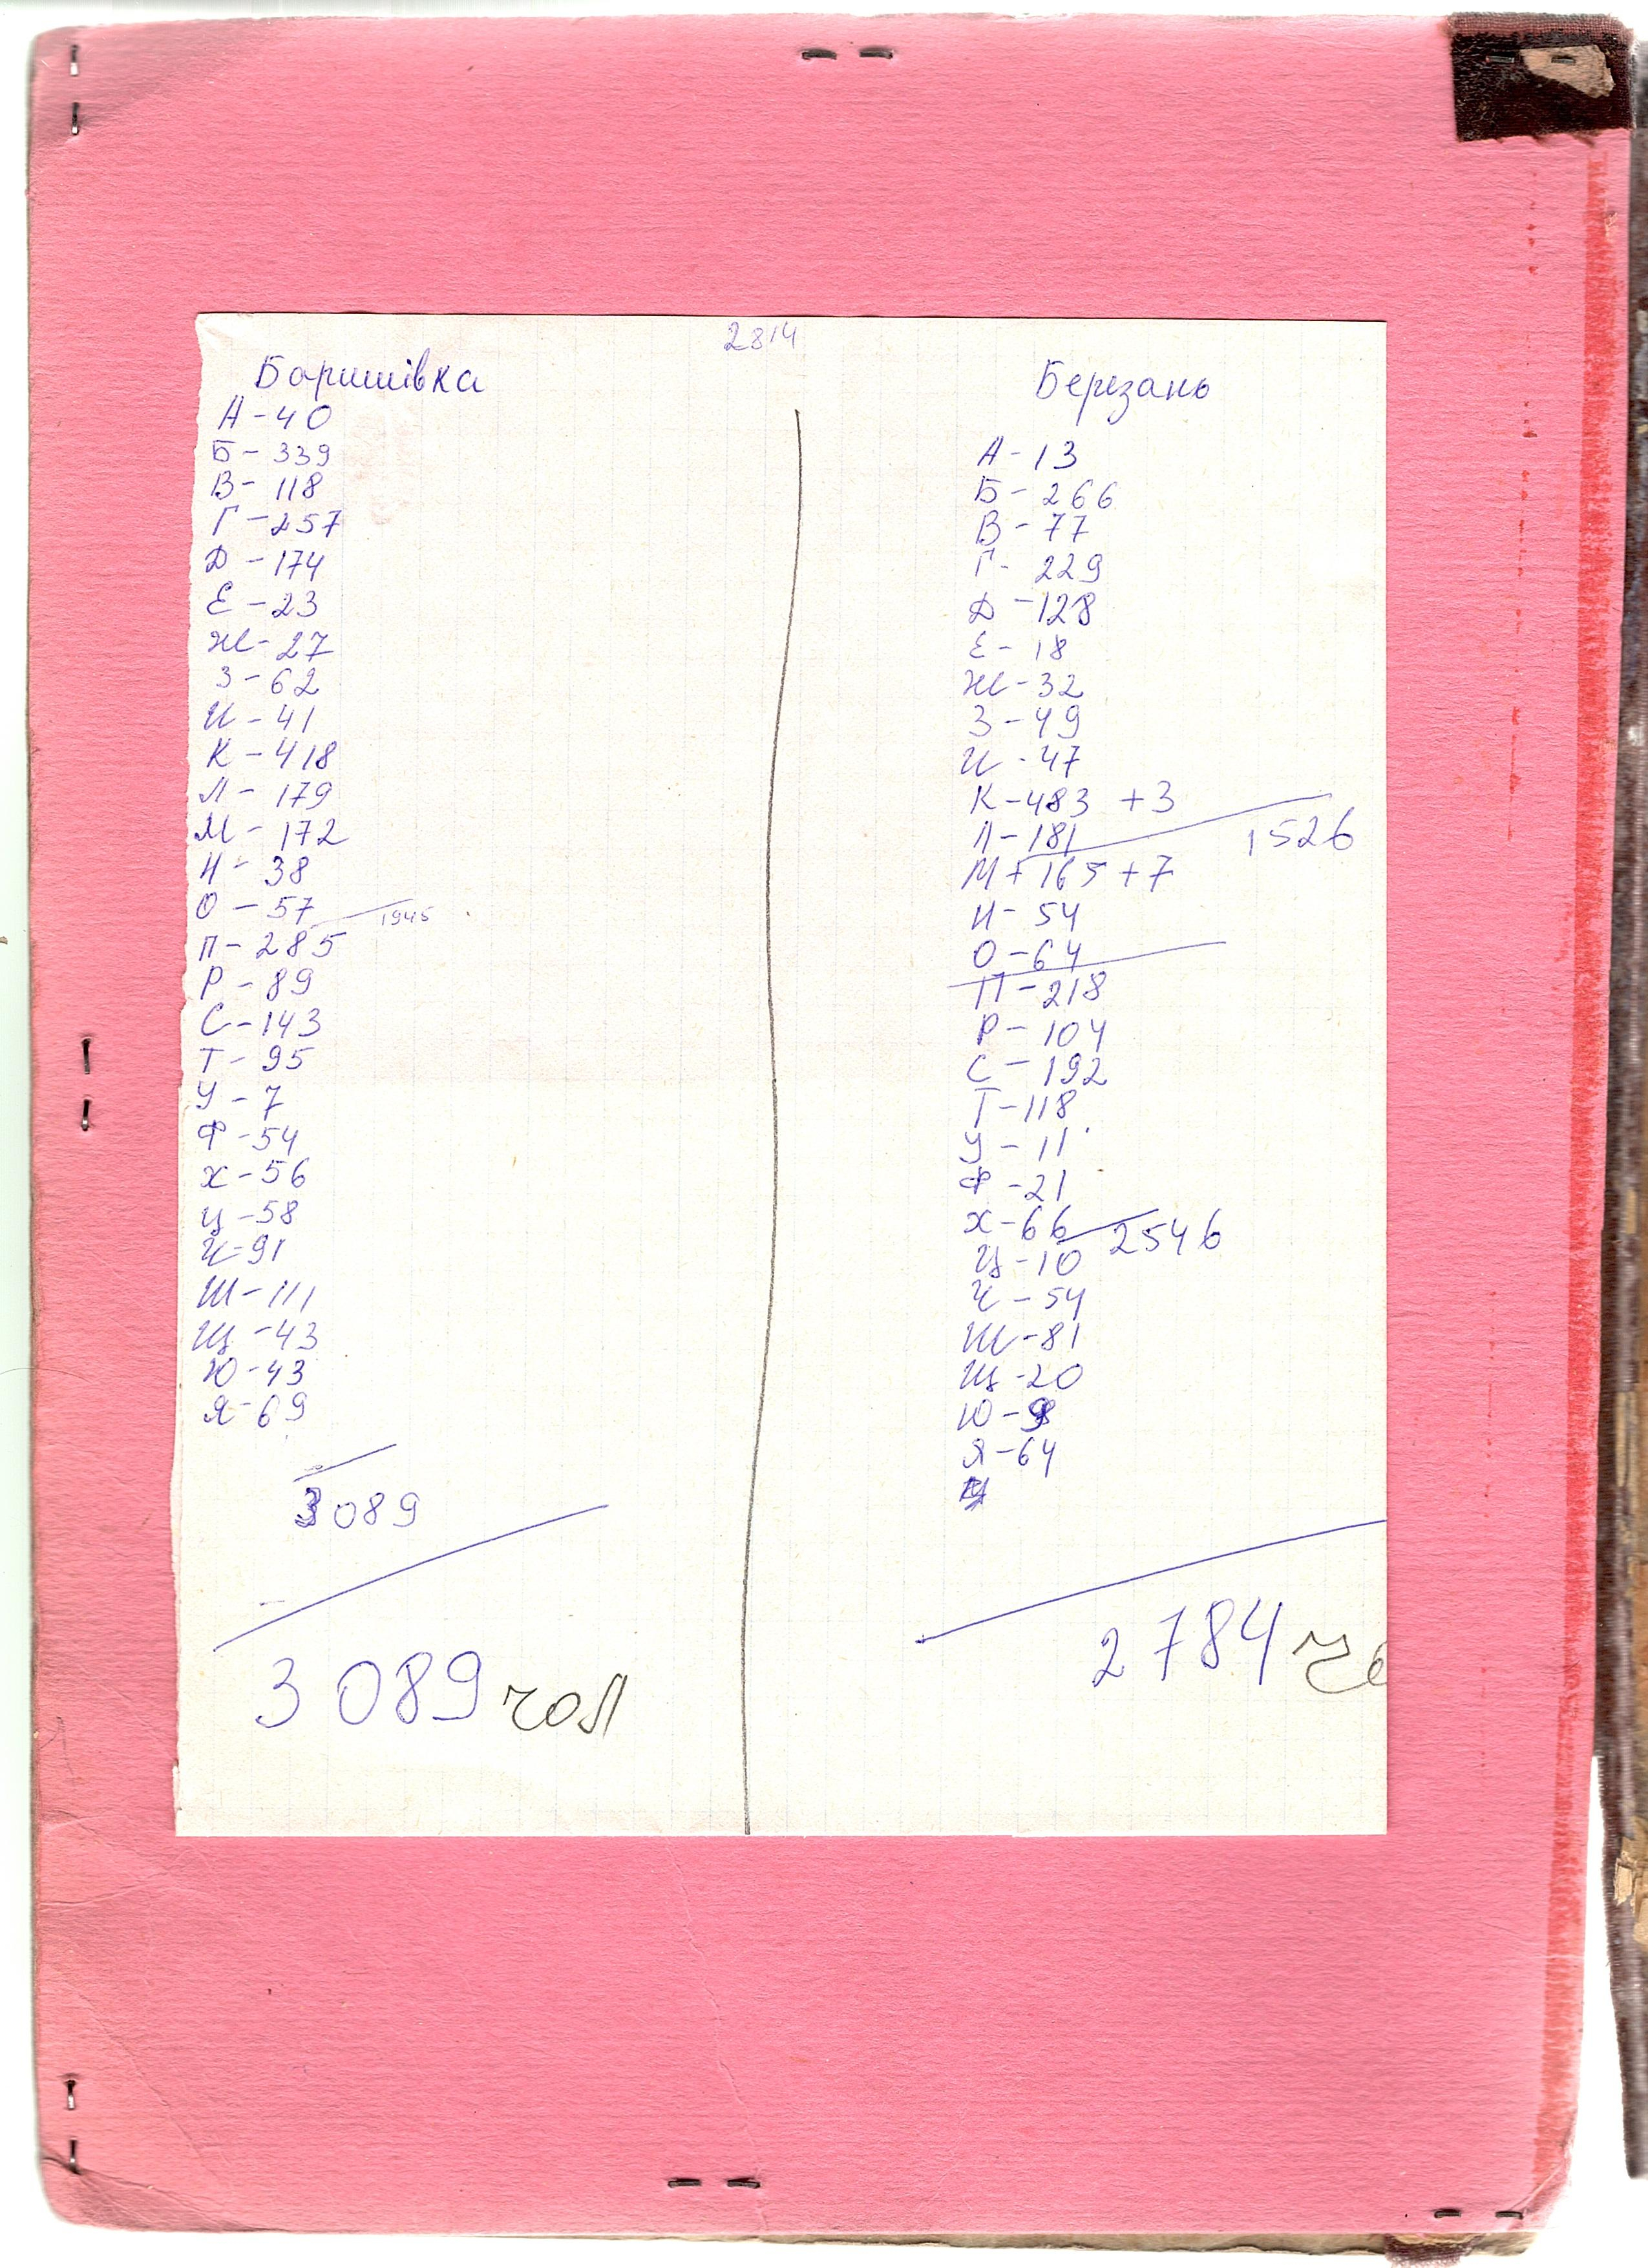 2814
Баришівка
А - 40
Б - 339
В - 118
Г - 257
Д - 174
Е - 23
Ж - 27
З - 62
И - 41
К - 418
Л - 179
М - 172
Н - 38
О - 57
1945
П - 285
Р - 89
С - 143
Т - 95
У - 7
Ф - 54
Х - 56
Ц - 58
Ч - 91
Ш - 111
Щ - 43
Ю - 43
Я - 69
3089
3089 чол
Березань
А - 13
Б - 266
В - 77
Г - 229
Д - 128
Е - 18
Ж - 32
З - 49
И - 47
К - 483 + 3
Л - 181
1526
М + 165 + 7
Н - 54
О - 64
П - 218
Р - 104
С - 192
Т - 118
У - 11
Ф - 21
Х - 66
2546
Ц - 10
Ч - 54
Ш - 81
Щ - 20
Ю - 9
Я - 64
2784 чо